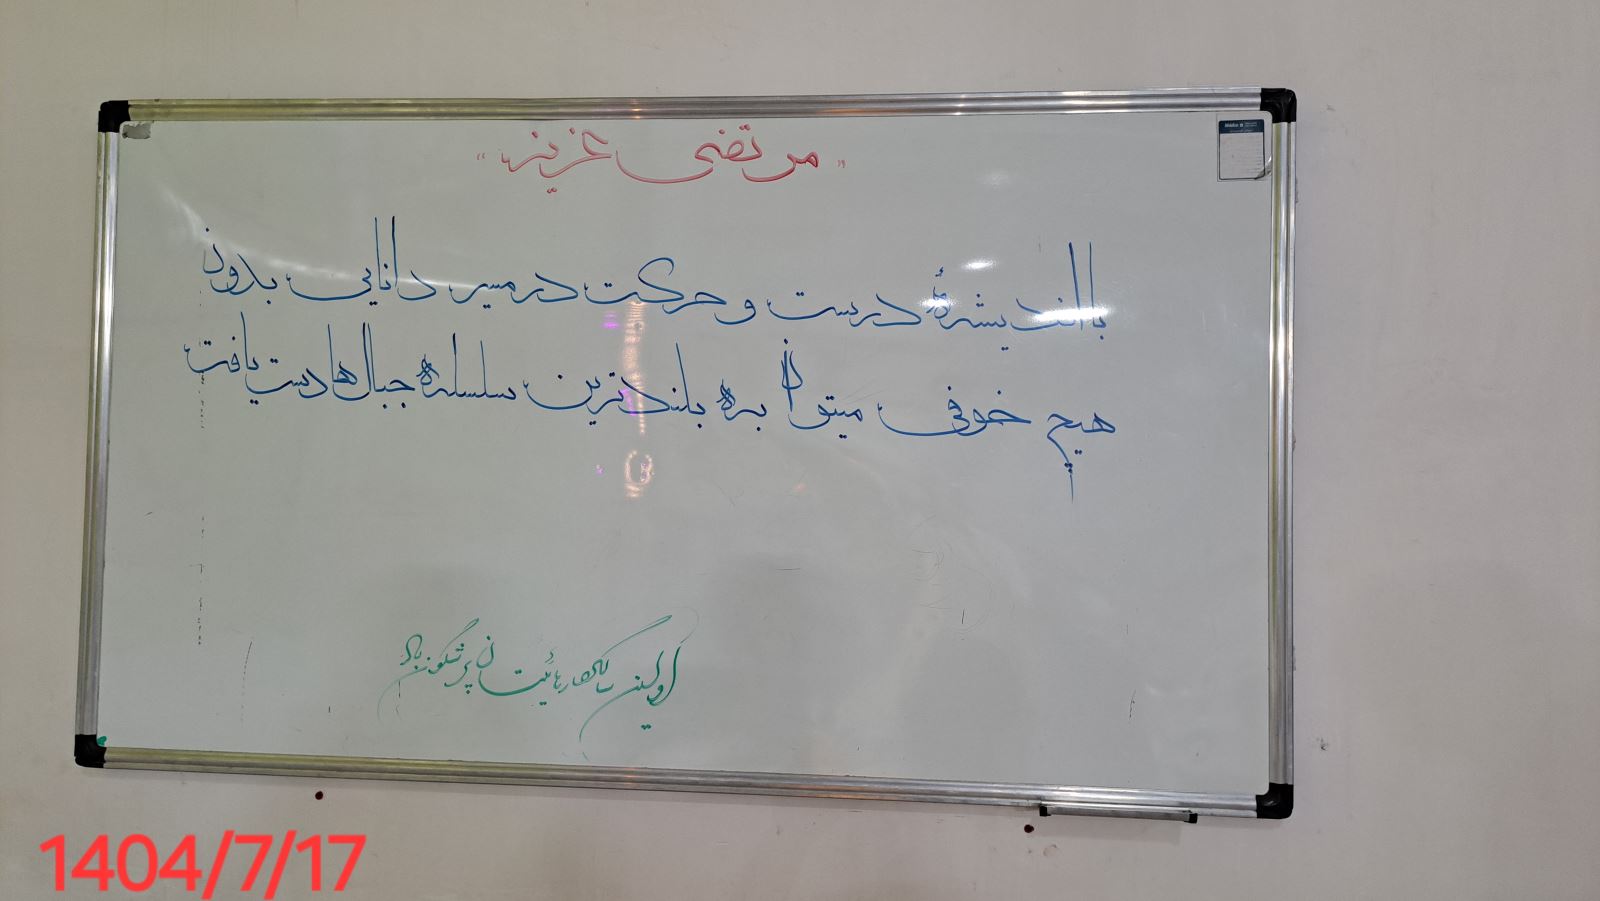 "مرتضی عزیز"
با اندیشهٔ درست و حرکت در مسیر دانایی بدون
هیچ خوفی میتوان به بلندترین سلسله جبال ها دست یافت
اولین سالگرد رهائیتان پرشگون باد
1404/7/17